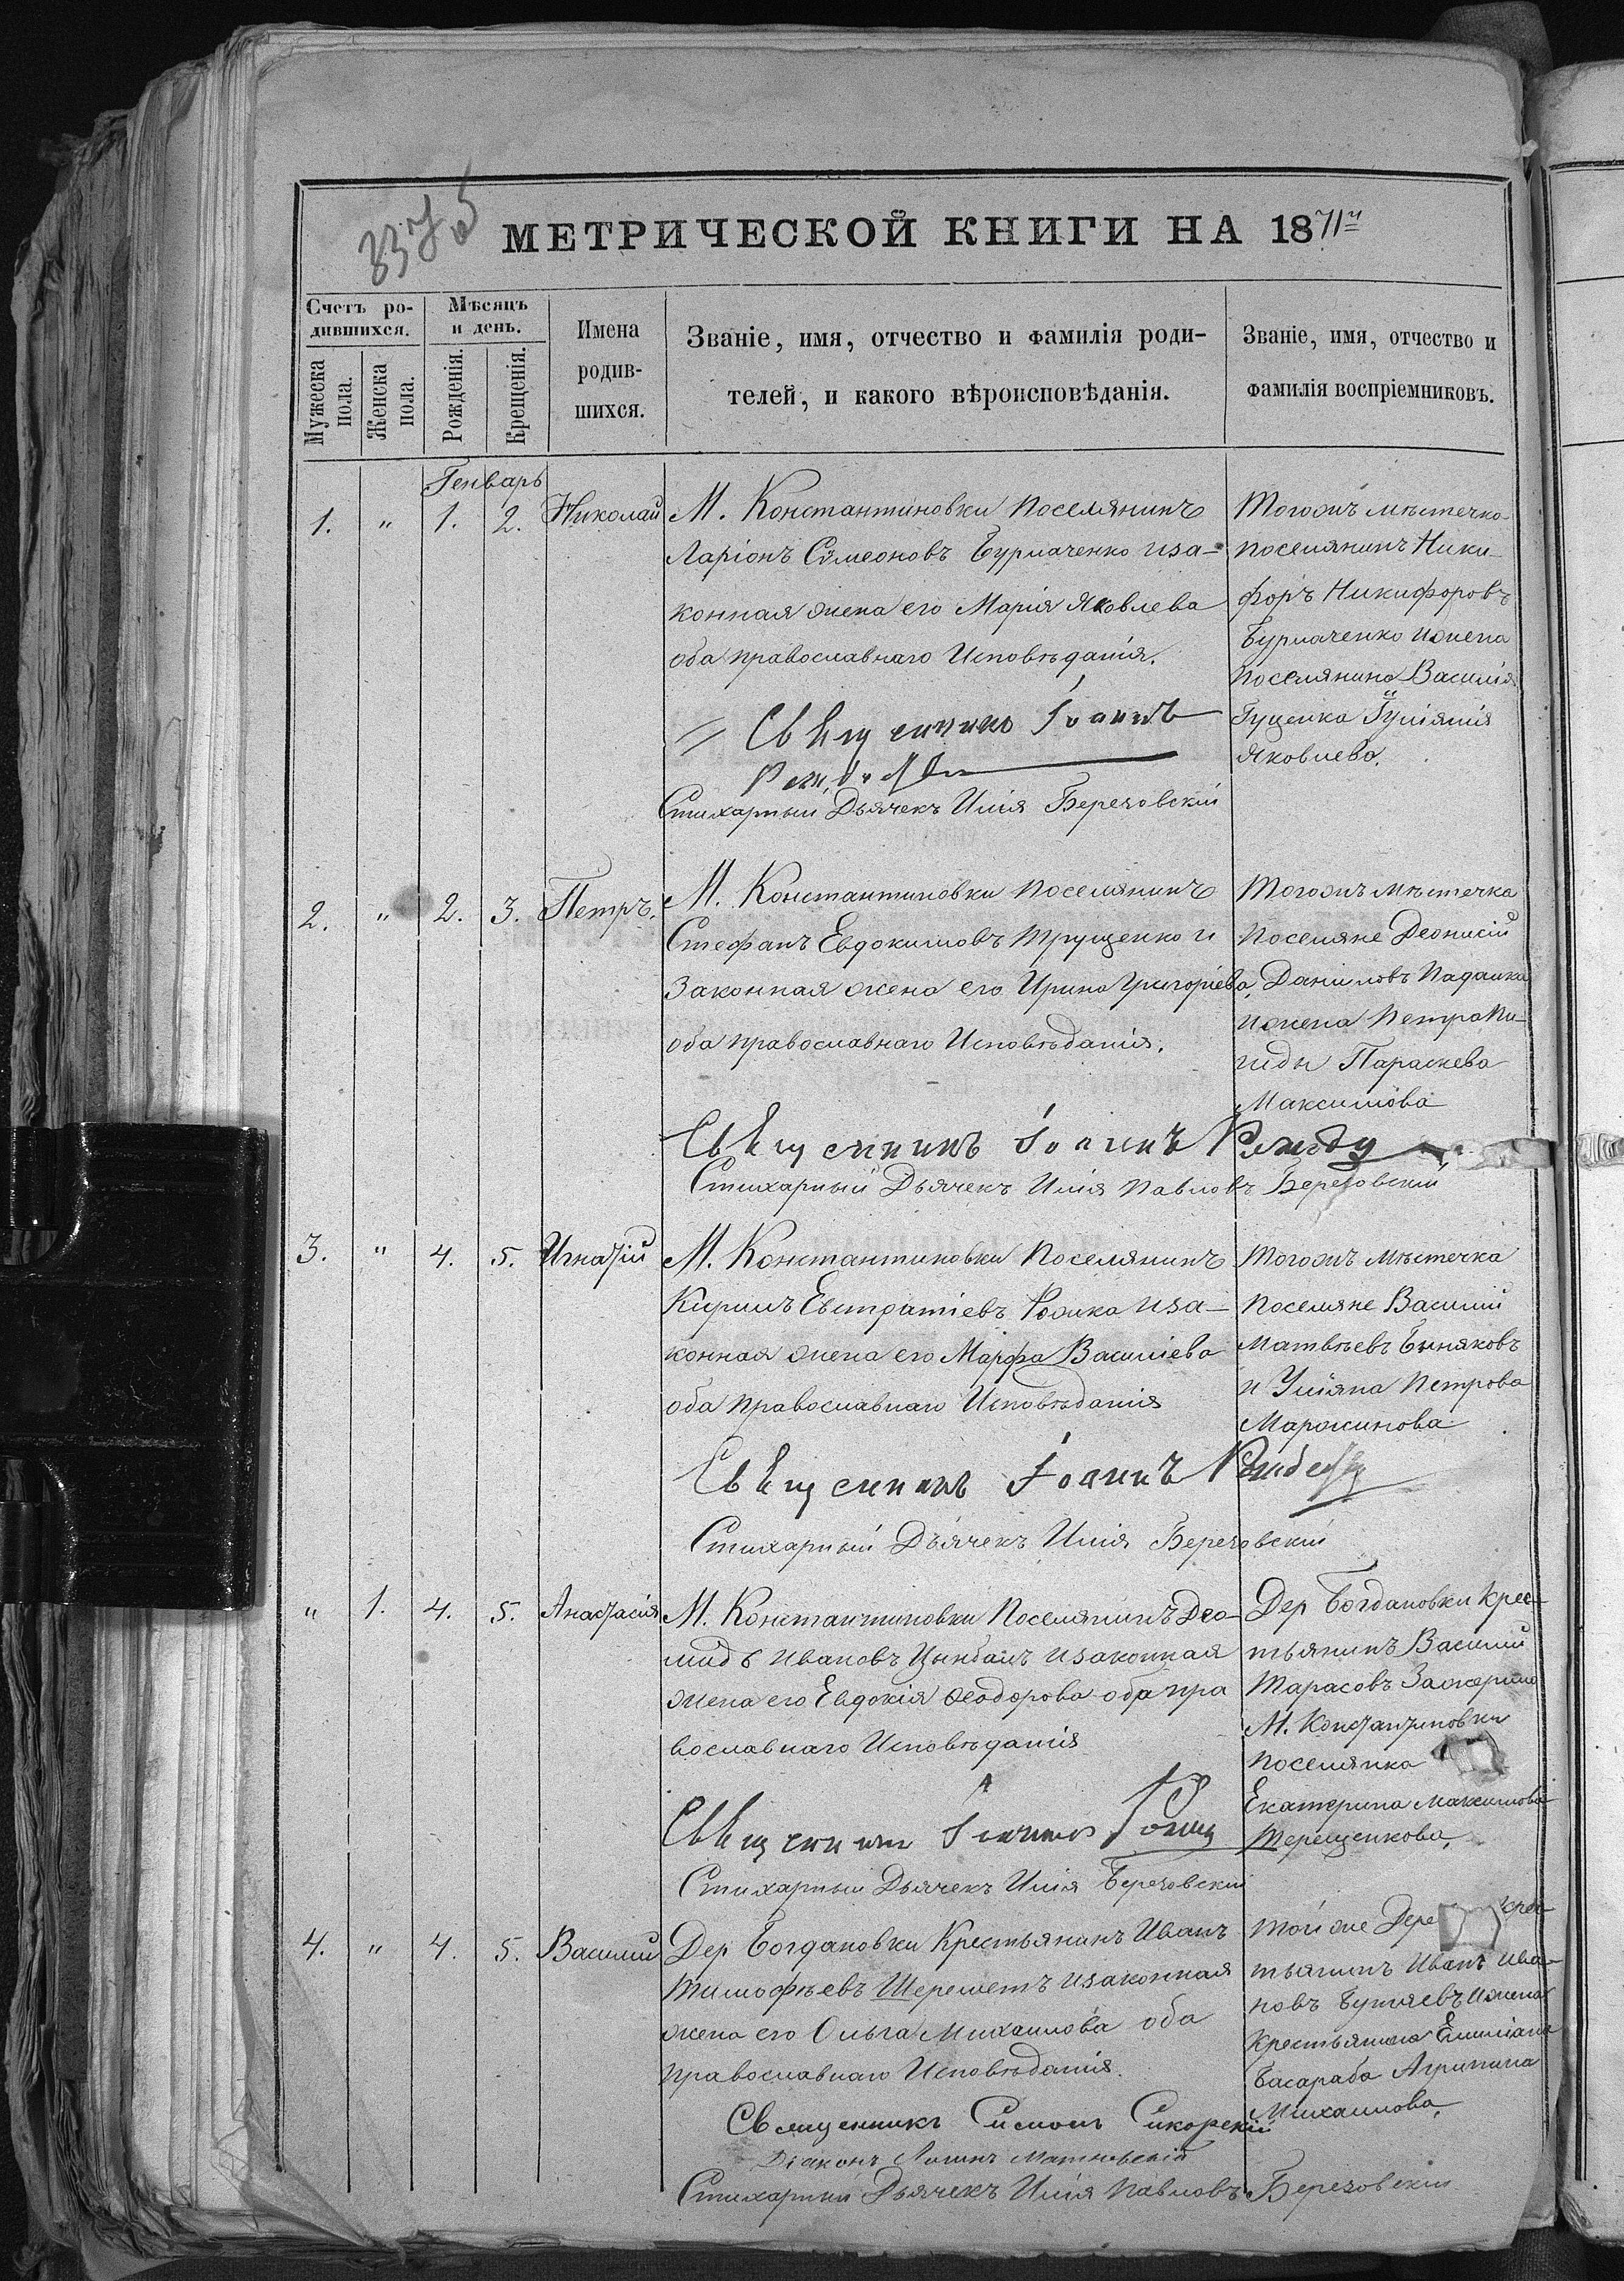 337 об
МЕТРИЧЕСКОЙ КНИГИ НА 1871й
Счетъ ро-
дившихся.
Мужеска пола.
Женска пола.
Мѣсяцъ
и день.
Рожденія.
Крещенія.
Имена
родив-
шихся.
Званіе, имя, отчество и фамилія роди-
телей, и какого вѣроисповѣданія.
Званіе, имя, отчество и
фамилія воспріемниковъ.
Генварь
1. " 1. 2. Николай
М. Константиновки поселянинъ
Ларіонъ Сѵмеоновъ Бурлаченко иза-
конная жена его Марія Яковлева
оба православнаго Исповѣданія.
Священникъ Іоаннъ
Стихарный Дьячекъ Илія Березовскій
Тогожъ мѣстечка
поселянинъ Ники
форъ Никифоровъ
Бурлаченко ижена
поселянина Василія
Гуценка
Яковлева.
2. " 2. 3. Петръ.
М. Константиновки поселянинъ
Стефанъ Евдокимовъ Трущенко и
Законная жена его Ирина Григоріева,
оба православнаго Исповѣданія.
Священникъ Іоаннъ
Стихарный Дьячекъ Илія Павловъ Березовскій
Тогожъ мѣстечка
поселяне Деонисій
Даниловъ Падалка
ижена Петра
Параскева
Максимова
3. " 4. 5. Игнатій
М. Константиновки поселянинъ
Кирилъ Евстратіевъ иза-
конная жена его Марфа Василіева
оба православнаго Исповѣданія
Священникъ Іоаннъ
Стихарный Дьячекъ Илія Березовскій
Тогожъ мѣстечка
поселяне Василий
Матвѣевъ
и Уліяна Петрова
" 1. 4. 5. Анастасія
М. Константиновки Поселянинъ Део-
мидъ Ивановъ Цымбалъ изаконная
жена его Евдокія Ѳеодорова оба пра
вославнаго Исповѣданія
Священникъ Іоаннъ
Стихарный Дьячекъ Илія Березовскій
Дер Богдановки Крес-
тьянинъ Василий
Тарасовъ
М. Константиновки
поселянка
Екатерина Максимова
Терещенкова.
4. " 4. 5. Василий
Дер Богдановки Крестьянинъ Иванъ
Тимофѣевъ Шереметъ изаконная
жена его Ольга Михаилова оба
православнаго Исповѣданія.
Священникъ Симонъ Сикорскій
Діаконъ
Стихарный Дьячекъ Илія Павловъ Березовскій
Той же Дере крес
тьянинъ Иванъ Ива-
новъ ижена
Крестьянина Емиліана
Басараба Агрипина
Михаилова.